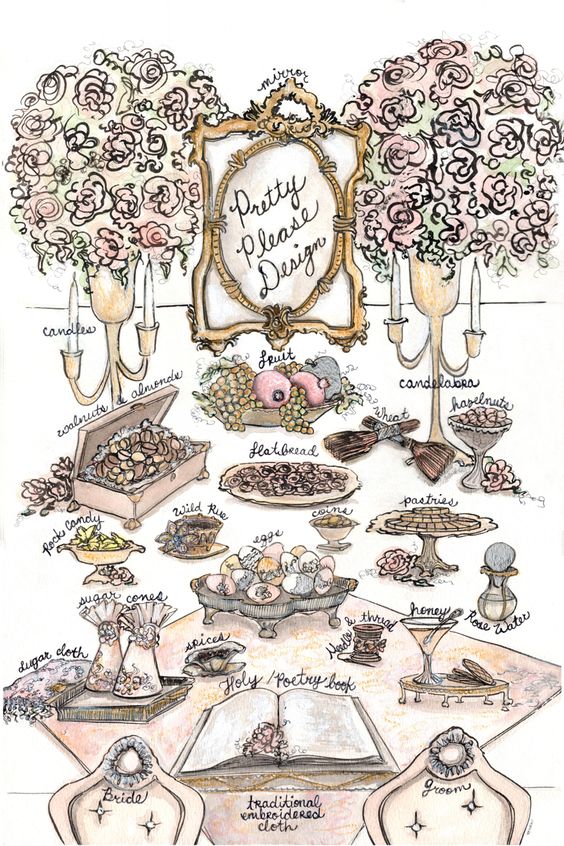 mirror
Pretty
Please
Design
candles
fruit
candelabra
walnuts & almonds
wheat
hazelnuts
flatbread
Rock Candy
Wild Rue
coins
pastries
eggs
sugar cones
Needle & thread
honey
Rose Water
sugar cloth
spices
Holy / Poetry book
Bride
Groom
traditional
embroidered
cloth